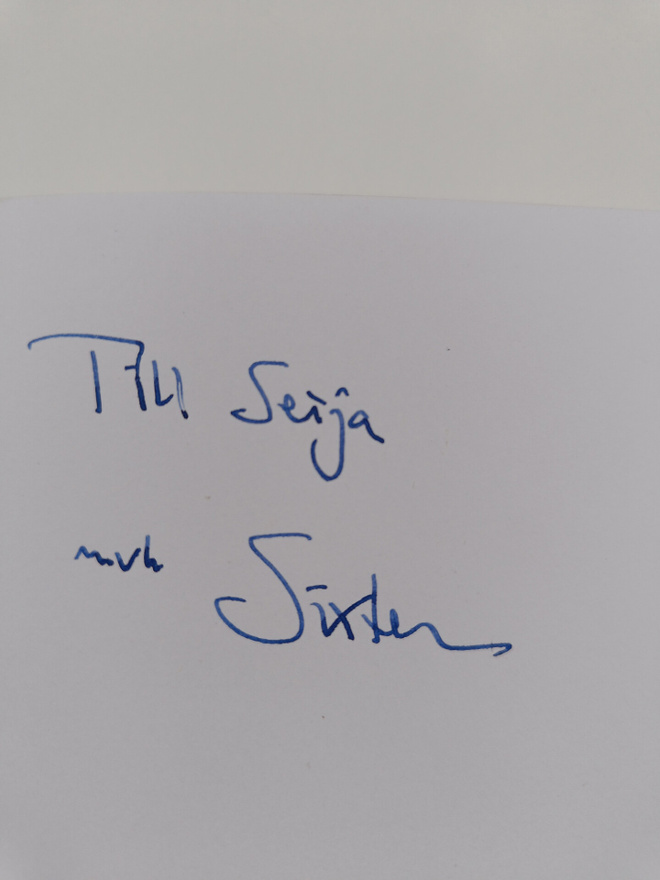 Till Seija
mvh Sixten